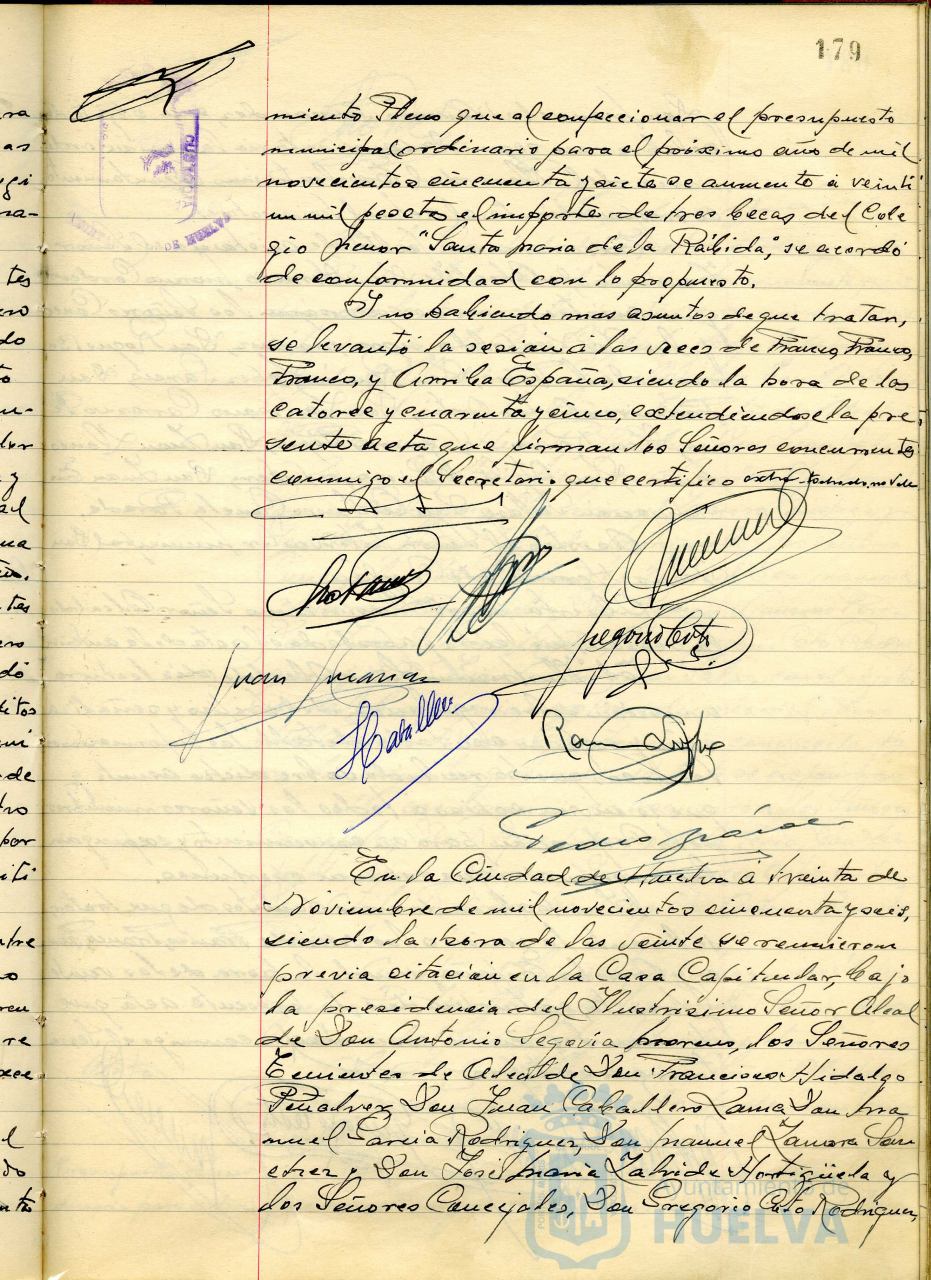 179
miento Pleno que al confeccionar el presupuesto
municipal ordinario para el próximo año de mil
novecientos cincuenta y siete se aumente a veinti
un mil pesetas el importe de tres becas del Cole
gio menor "Santa maria de la Rábida", se acordó
de conformidad con lo propuesto.
Y no habiendo mas asuntos de que tratar,
se levantó la sesión a las voces de Franco, Franco,
Franco, y Arriba España, siendo la hora de las
catorce y cuarenta y cinco, extendiendose la pre
sente acta que firman los Señores concurrentes
conmigo el Secretario que certifico
Juan
HCaballero
Gregorio Cuto
Ramon
Pedro
En la Ciudad de Huelva a treinta de
Noviembre de mil novecientos cincuenta y seis,
siendo la hora de las veinte se reunieron
previa citación en la Casa Capitular, bajo
la presidencia del Ilustrisimo Señor Alcal
de Don Antonio Segovia moreno, los Señores
Tenientes de Alcalde Don Francisco Hidalgo
Peñalver, Don Juan Caballero Lama Don Ma
nuel Garcia Rodriguez, Don manuel Zamora San
chez y Don José maria Zalvide Hortigüela y
los Señores Concejales, Don Gregorio Cuto Rodriguez,
Ayuntamiento de
HUELVA